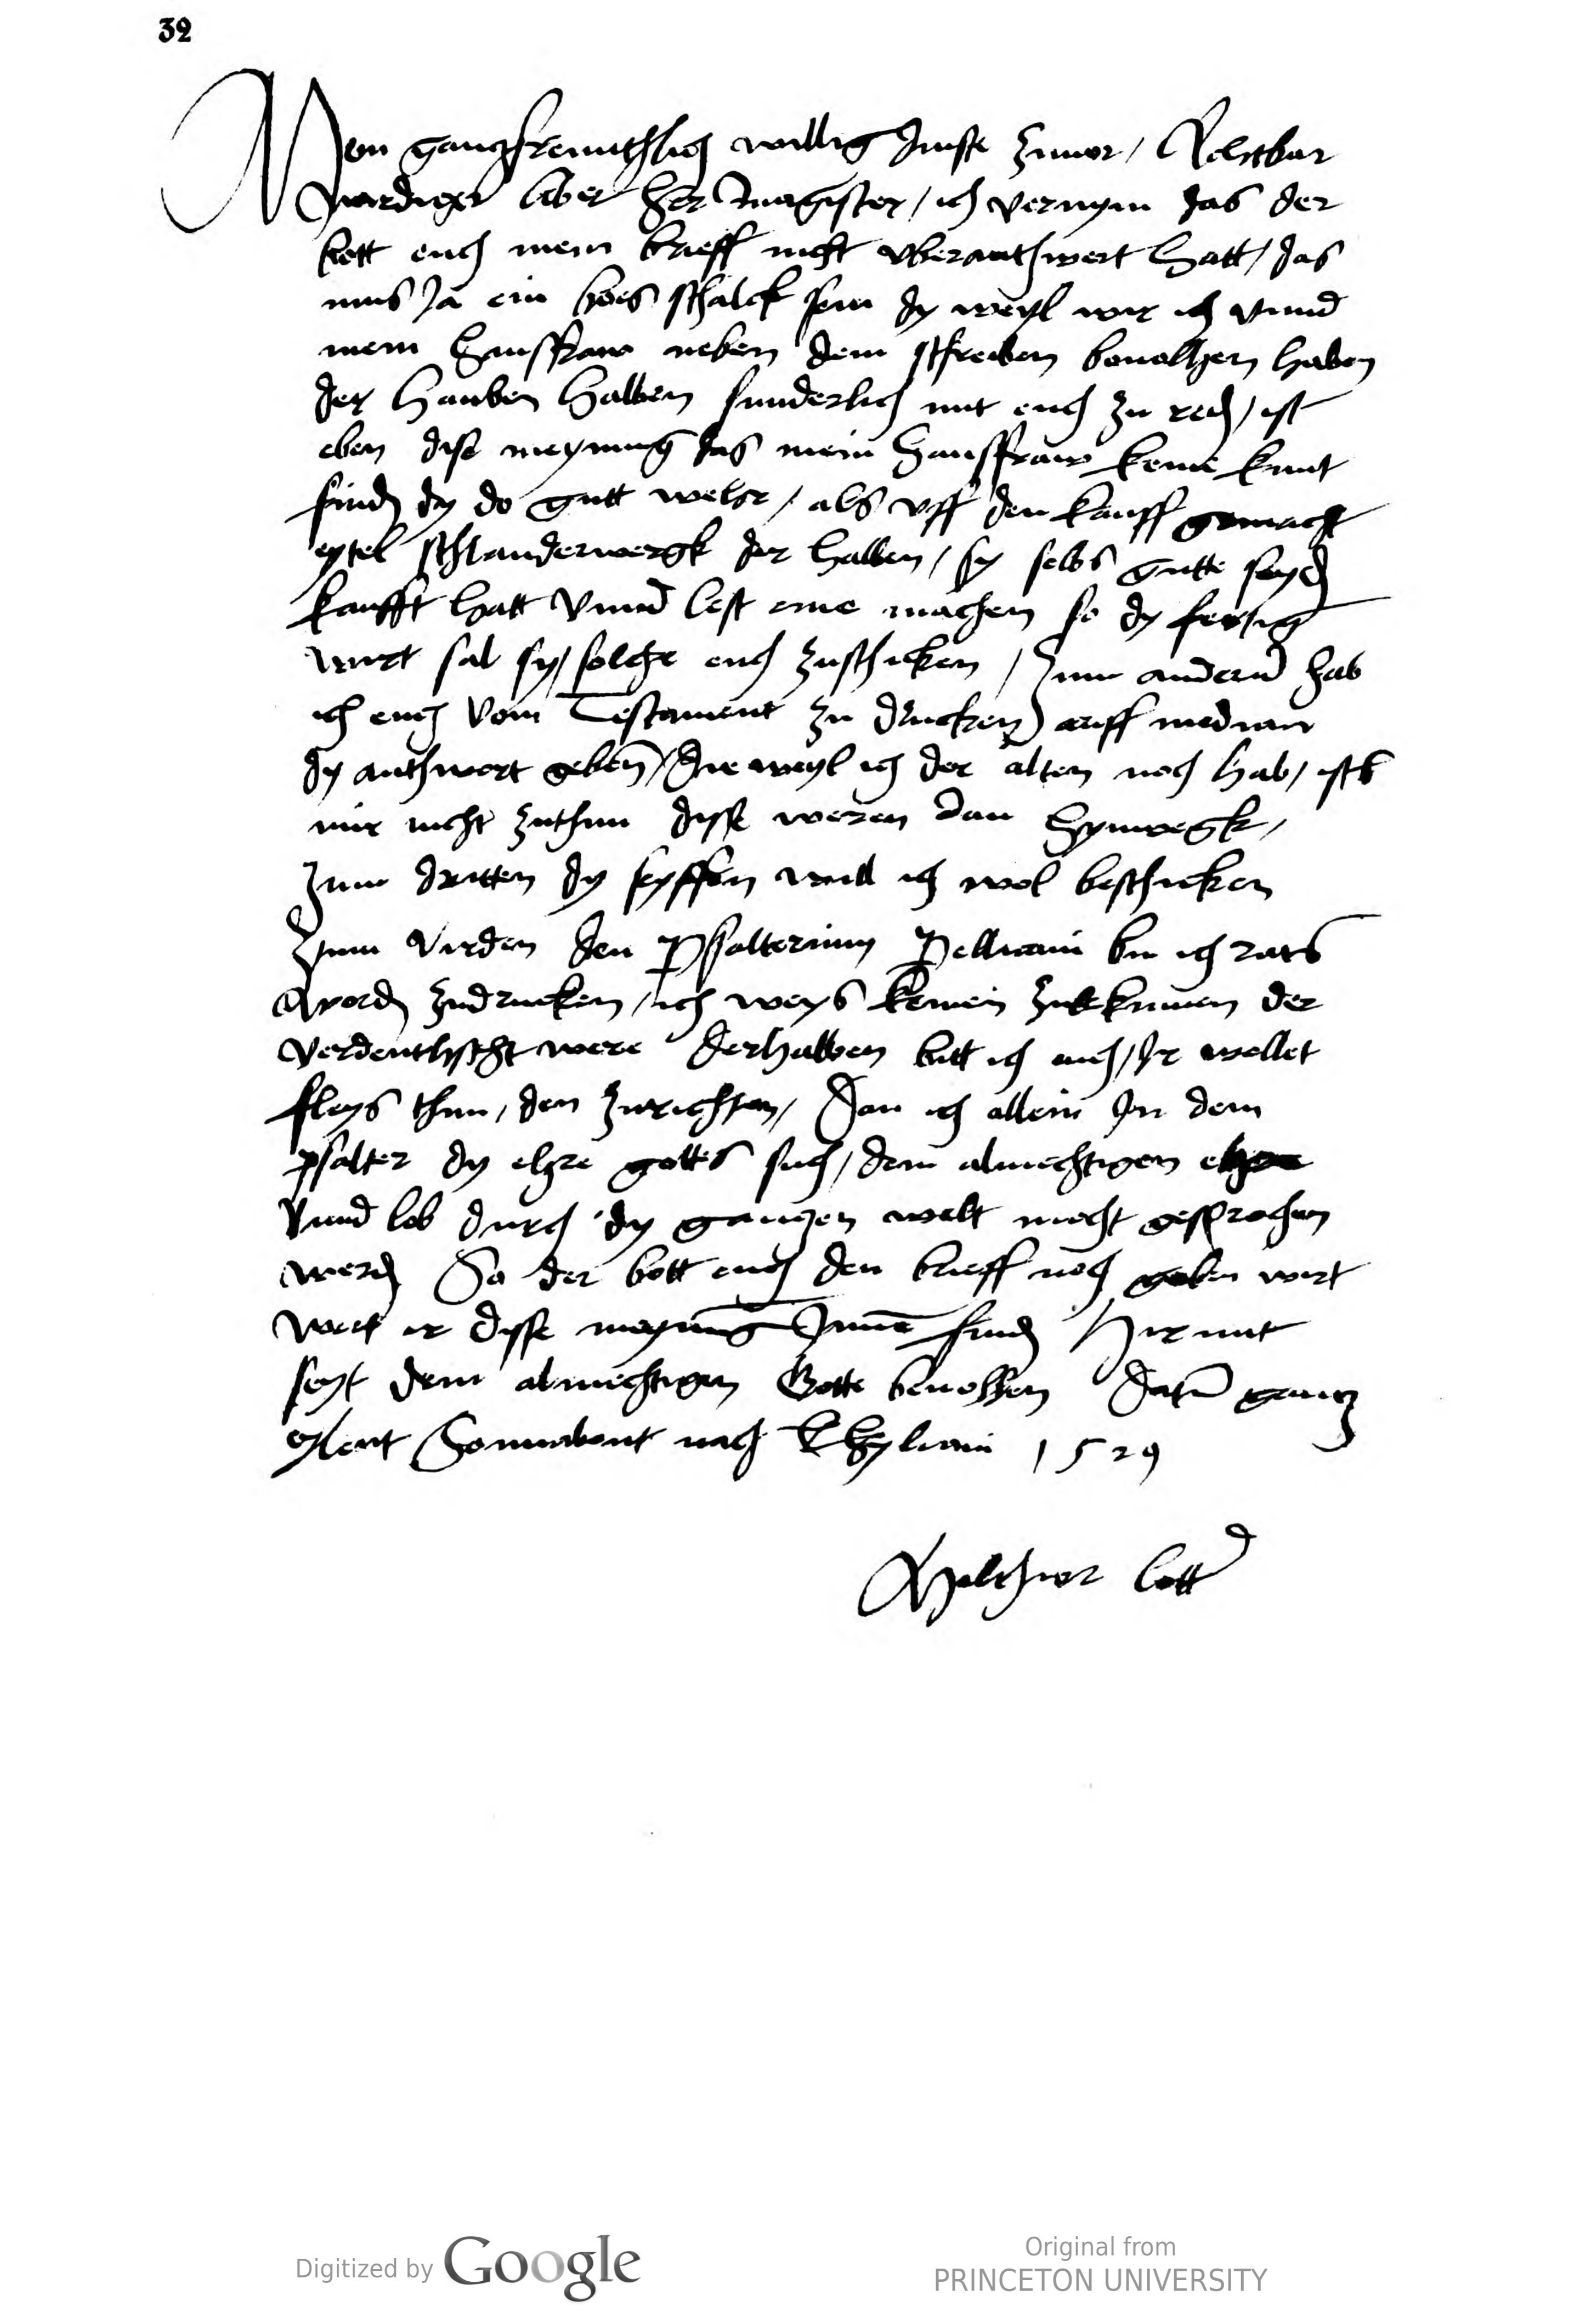 32
Mein gantz freuntlich willig dinste zuuor / Achtbar
wirdiger liber her Magister / ich vernym das der
bott euch mein brieff nicht vberanthwert hatt / das
mus Ja ein böes schalck sein dy weyl wir ich vnnd
mein hausfraw neben dem schreiben beuolhen haben
der hauben halben sunderlich mit euch zu red / ist
eben dise meynung das mein hausffraw keine kunt
find dy do gutt wehr / als vff den kauff gemacht
eytel schlauderwergk der halben / sy selbs gutte seyd
kaufft hatt vnnd lest eine machen so dy fertig
wirt sal sy / solche euch zuschicken / Zum andern hab
ich euch vom Testament zu drucken auff median
dy anthwort geben / die weyl ich der alten noch hab / ists
mir nicht zuthun disse weren dan hynwegk /
Zum dritten dy seyffen will ich wol beschicken
Zum virden den Psalterium Pellicani bin ich rats
word zudrucken / ich weys keinen zukkumen der
verdeutschst were derhalben bitt ich euch / Ir wollet
fleys thun / den zurichten / Dan ich allein In dem
psalter dy ehre gottes such / dem almechtigen ehre
vnnd lob durch dy gantzen welt mocht gesprochen
werd So der bott euch den brieff noch geben wirt
wert ir disse meynung Inne find Hirmit
seyt dem almechtigen Gotte beuolhen Datum gantz
eylent Sonnabent nach Khyliani 1529
Melchior Lotter
Digitized by Google
Original from
PRINCETON UNIVERSITY